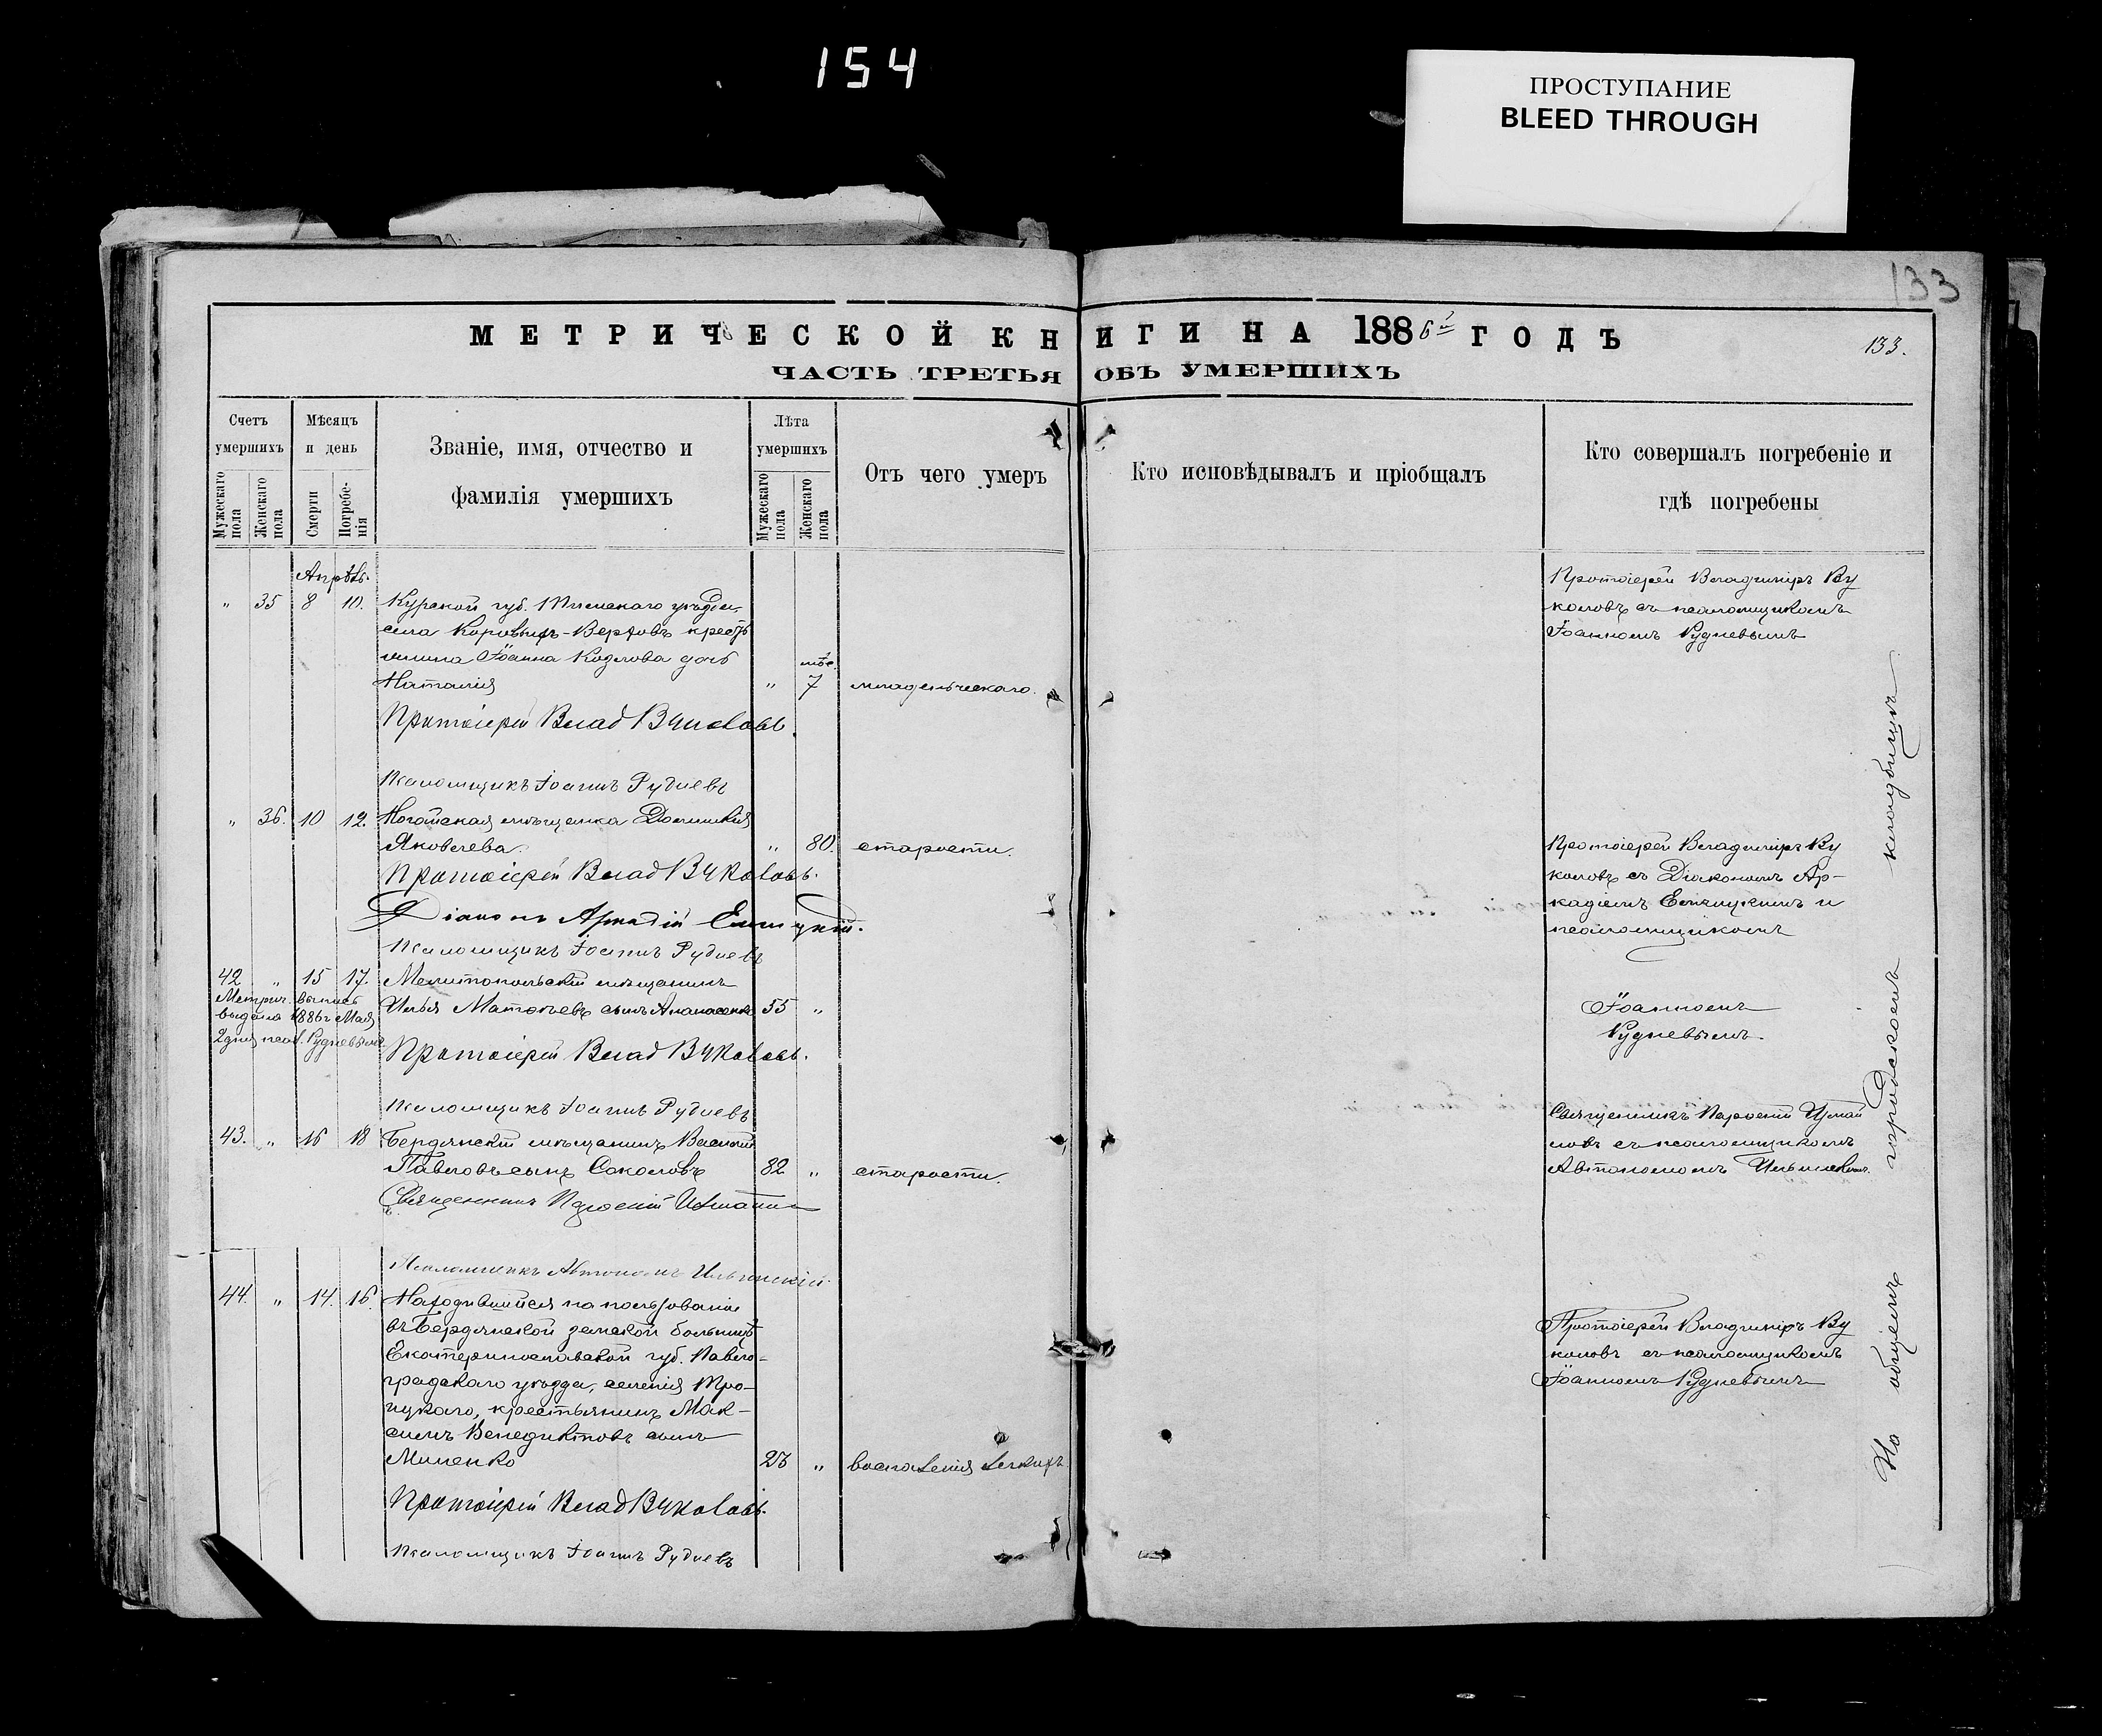 154
ПРОСТУПАНИЕ
BLEED THROUGH
133
МЕТРИЧЕСКОЙ КНИГИ НА 1886й ГОДЪ
133.
ЧАСТЬ ТРЕТЬЯ ОБЪ УМЕРШИХЪ
Счетъ умершихъ
Мужескаго пола
Женскаго пола
Мѣсяцъ и день
Смерти
Погребенія
Званіе, имя, отчество и
фамилія умершихъ
Лѣта умершихъ
Мужескаго пола
Женскаго пола
Отъ чего умеръ
Кто исповѣдывалъ и пріобщалъ
Кто совершалъ погребеніе и
гдѣ погребены
Апрѣль.
" 35 8 10. Курской губ. Тимскаго уѣзда,
села Коровьихъ-Верховъ кресть
янина Іоанна Козлова дочь
Наталія " мѣс. 7 младенческаго.
Протоіерей Влад Вуколовъ.
Псаломщикъ Іоаннъ Рудневъ
Протоіерей Владиміръ Ву
коловъ съ псаломщикомъ
Іоанномъ Рудневымъ
" 36. 10 12. Ногайская мѣщанка Домникія
Яковлева. " 80. старости.
Протоіерей Влад Вуколовъ.
Діаконъ Аркадій
Псаломщикъ Іоаннъ Рудневъ
Протоіерей Владиміръ Ву
коловъ съ Діакономъ Ар-
кадіемъ и
псаломщикомъ
Іоанномъ
Рудневымъ.
42 " 15 17. Мелитопольскій мѣщанинъ
Илья Матвѣевъ сынъ 55 "
Метрич. выпись
выдана 1886г Мая
2 дня псал. Рудневымъ.
Протоіерей Влад Вуколовъ.
Псаломщикъ Іоаннъ Рудневъ
43. " 16 18 Бердянскій мѣщанинъ Василій
Павловъ сынъ Соколовъ 82 " старости.
Священникъ
Псаломщикъ Автономъ
Священникъ
ловъ съ псаломщикомъ
Автономомъ
44. " 14. 16. Находившійся на пользованіи
въ Бердянской земской больницѣ
Екатеринославской губ. Павло-
градскаго уѣзда, селенія Тро-
ицкаго, крестьянинъ Мак-
симъ Венедиктовъ сынъ
Миненко 23 " воспаленія легкихъ
Протоіерей Влад Вуколовъ.
Псаломщикъ Іоаннъ Рудневъ
Протоіерей Владиміръ Ву
коловъ съ псаломщикомъ
Іоанномъ Рудневымъ
На общемъ городскомъ кладбищѣ